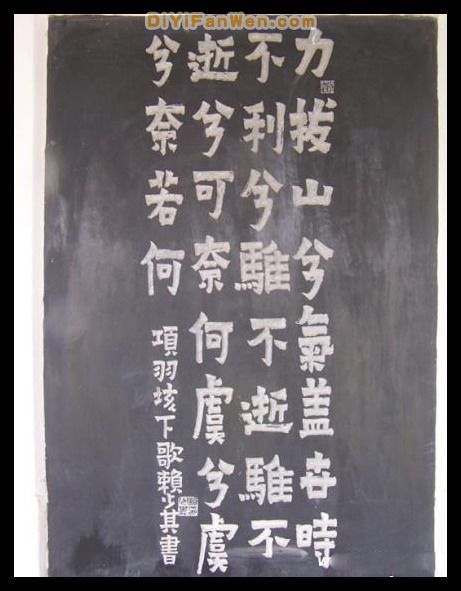 DiYiFanWen.com
力拔山兮氣蓋世時
不利兮騅不逝騅不
逝兮可奈何虞兮虞
兮奈若何
項羽垓下歌賴少其書